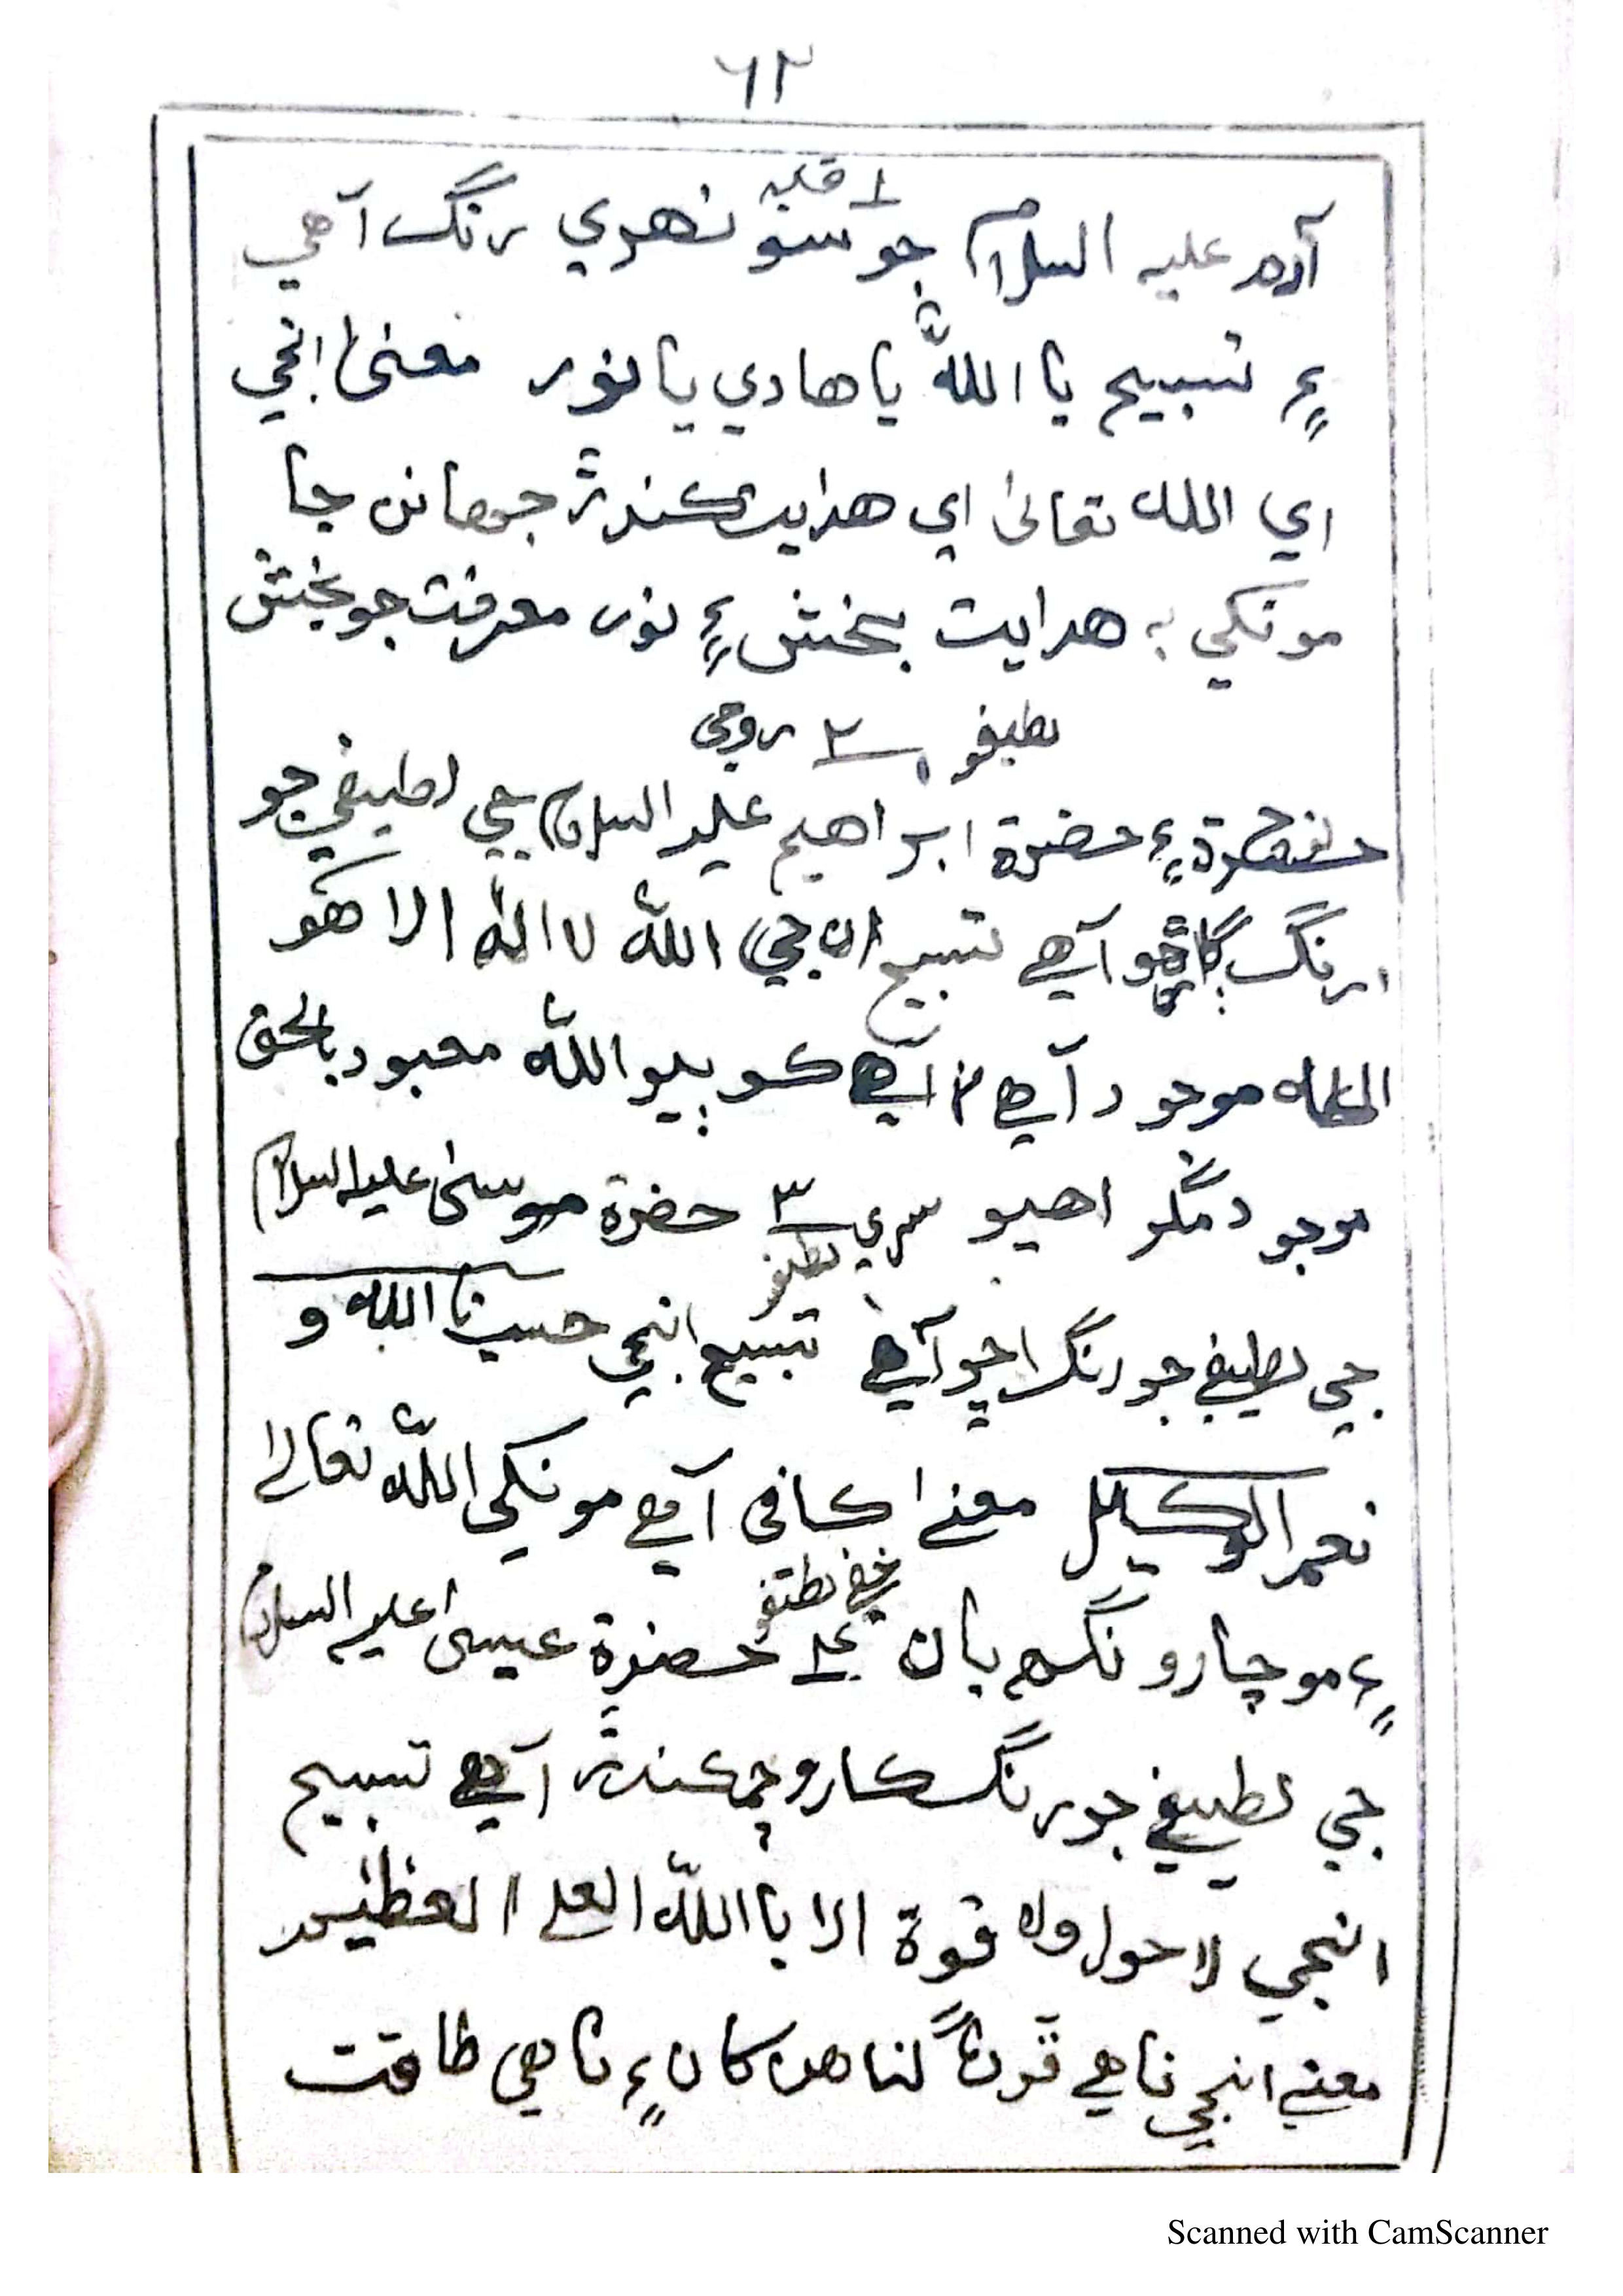 ٦٢
١ قلبه
آدم عليه السلام جو سونهري رنگ آهي
۽ تسبيح يا اللّٰه يا هادي يا نور معنيٰ انجي
اي الله تعاليٰ اي هدايت ڪندڙ جهانن جا
مونکي به هدايت بخش ۽ نور معرفت جو بخش
لطيفو ٢ روحي
حضرة نوح ۽ حضرة ابراهيم عليه السلام جي لطيفي جو
رنگ ڳاڙهو آهي تسبيح ان جي اللّٰه لا الٰه الا هو
الله موجود آهي نه آهي ڪو ٻيو اللّٰه معبود بالحق
موجود مگر اهيو سري ٣ حضرة موسيٰ عليه السلام
لطيفو
جي لطيفي جو رنگ اڇو آهي تسبيح انجي حسبنا الله و
نعم الوڪيل معنيٰ ڪافي آهي مونکي اللّٰه تعاليٰ
خفي لطيفو
۽ مو چارو نگهبان ٤ حضرة عيسيٰ عليه السلام
جي لطيفي جو رنگ ڪارو چمڪندڙ آهي تسبيح
انجي لا حول ولا قوة الا با اللّٰه العلي العظيم
معنيٰ انجي ناهي ڦرڻ گناهن کان ۽ ناهي طاقت
Scanned with CamScanner